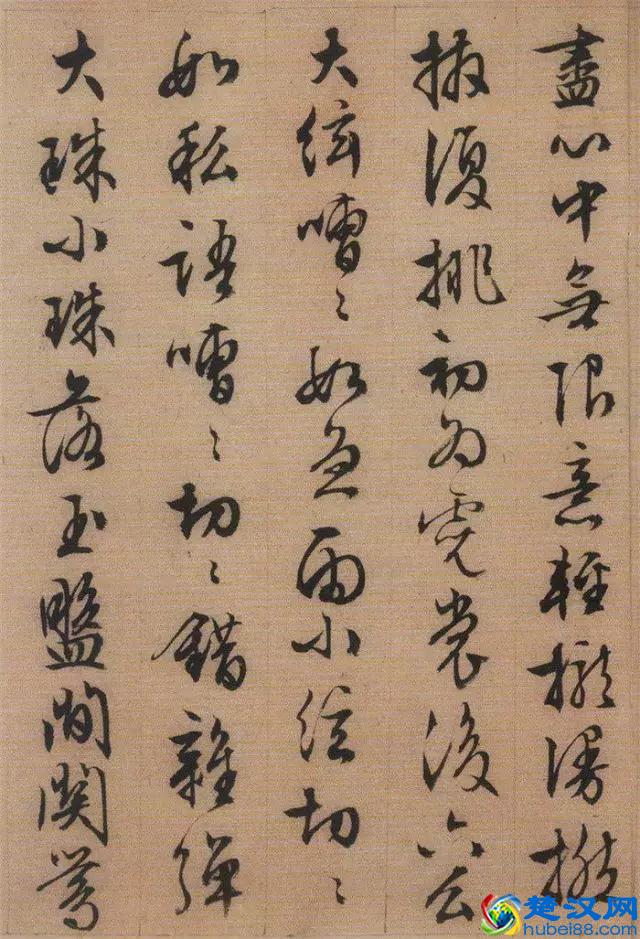 盡心中無限意輕攏慢撚
抹復挑初為霓裳後六么
大絃嘈〻如急雨小絃切〻
如私語嘈〻切〻錯雜彈
大珠小珠落玉盤間關鶯
楚汉网
hubei88.com